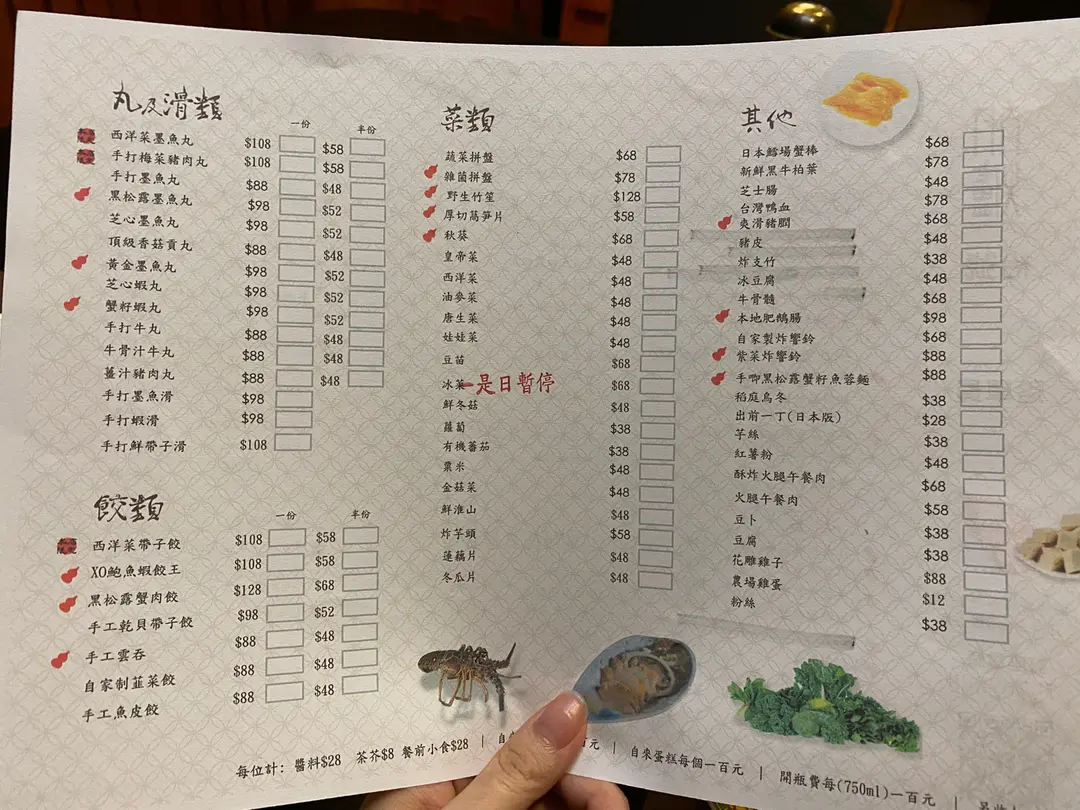 丸及滑類
一份 半份
西洋菜墨魚丸 $108 $58
手打梅菜豬肉丸 $108 $58
手打墨魚丸 $88 $48
黑松露墨魚丸 $98 $52
芝心墨魚丸 $98 $52
頂級香菇貢丸 $88 $48
黃金墨魚丸 $98 $52
芝心蝦丸 $98 $52
蟹籽蝦丸 $98 $52
手打牛丸 $88 $48
牛骨汁牛丸 $88 $48
薑汁豬肉丸 $88 $48
手打墨魚滑 $98
手打蝦滑 $98
手打鮮帶子滑 $108
餃類
一份 半份
西洋菜帶子餃 $108 $58
XO鮑魚蝦餃王 $108 $58
黑松露蟹肉餃 $128 $68
手工乾貝帶子餃 $98 $52
手工雲吞 $88 $48
自家制韮菜餃 $88 $48
手工魚皮餃 $88 $48
菜類
蔬菜拼盤 $68
雜菌拼盤 $78
野生竹笙 $128
厚切萵笋片 $58
秋葵 $68
皇帝菜 $48
西洋菜 $48
油麥菜 $48
唐生菜 $48
娃娃菜 $48
豆苗 $68
冰菜 是日暫停 $68
鮮冬菇 $48
蘿蔔 $38
有機蕃茄 $38
粟米 $48
金菇菜 $48
鮮淮山 $48
炸芋頭 $58
蓮藕片 $48
冬瓜片 $48
其他
日本鱈場蟹棒 $68
新鮮黑牛柏葉 $78
芝士腸 $48
台灣鴨血 $78
爽滑豬膶 $68
豬皮 $48
炸支竹 $38
冰豆腐 $48
牛骨髓 $68
本地肥鵝腸 $98
自家製炸響鈴 $68
紫菜炸響鈴 $88
手唧黑松露蟹籽魚蓉麵 $88
稻庭烏冬 $38
出前一丁(日本版) $28
芋絲 $38
紅薯粉 $48
酥炸火腿午餐肉 $68
火腿午餐肉 $58
豆卜 $38
豆腐 $38
花雕雞子 $88
農場雞蛋 $12
粉絲 $38
每位計: 醬料$28 茶芥$8 餐前小食$28 | 自 百元 | 自來蛋糕每個一百元 | 開瓶費每(750ml)一百元 |